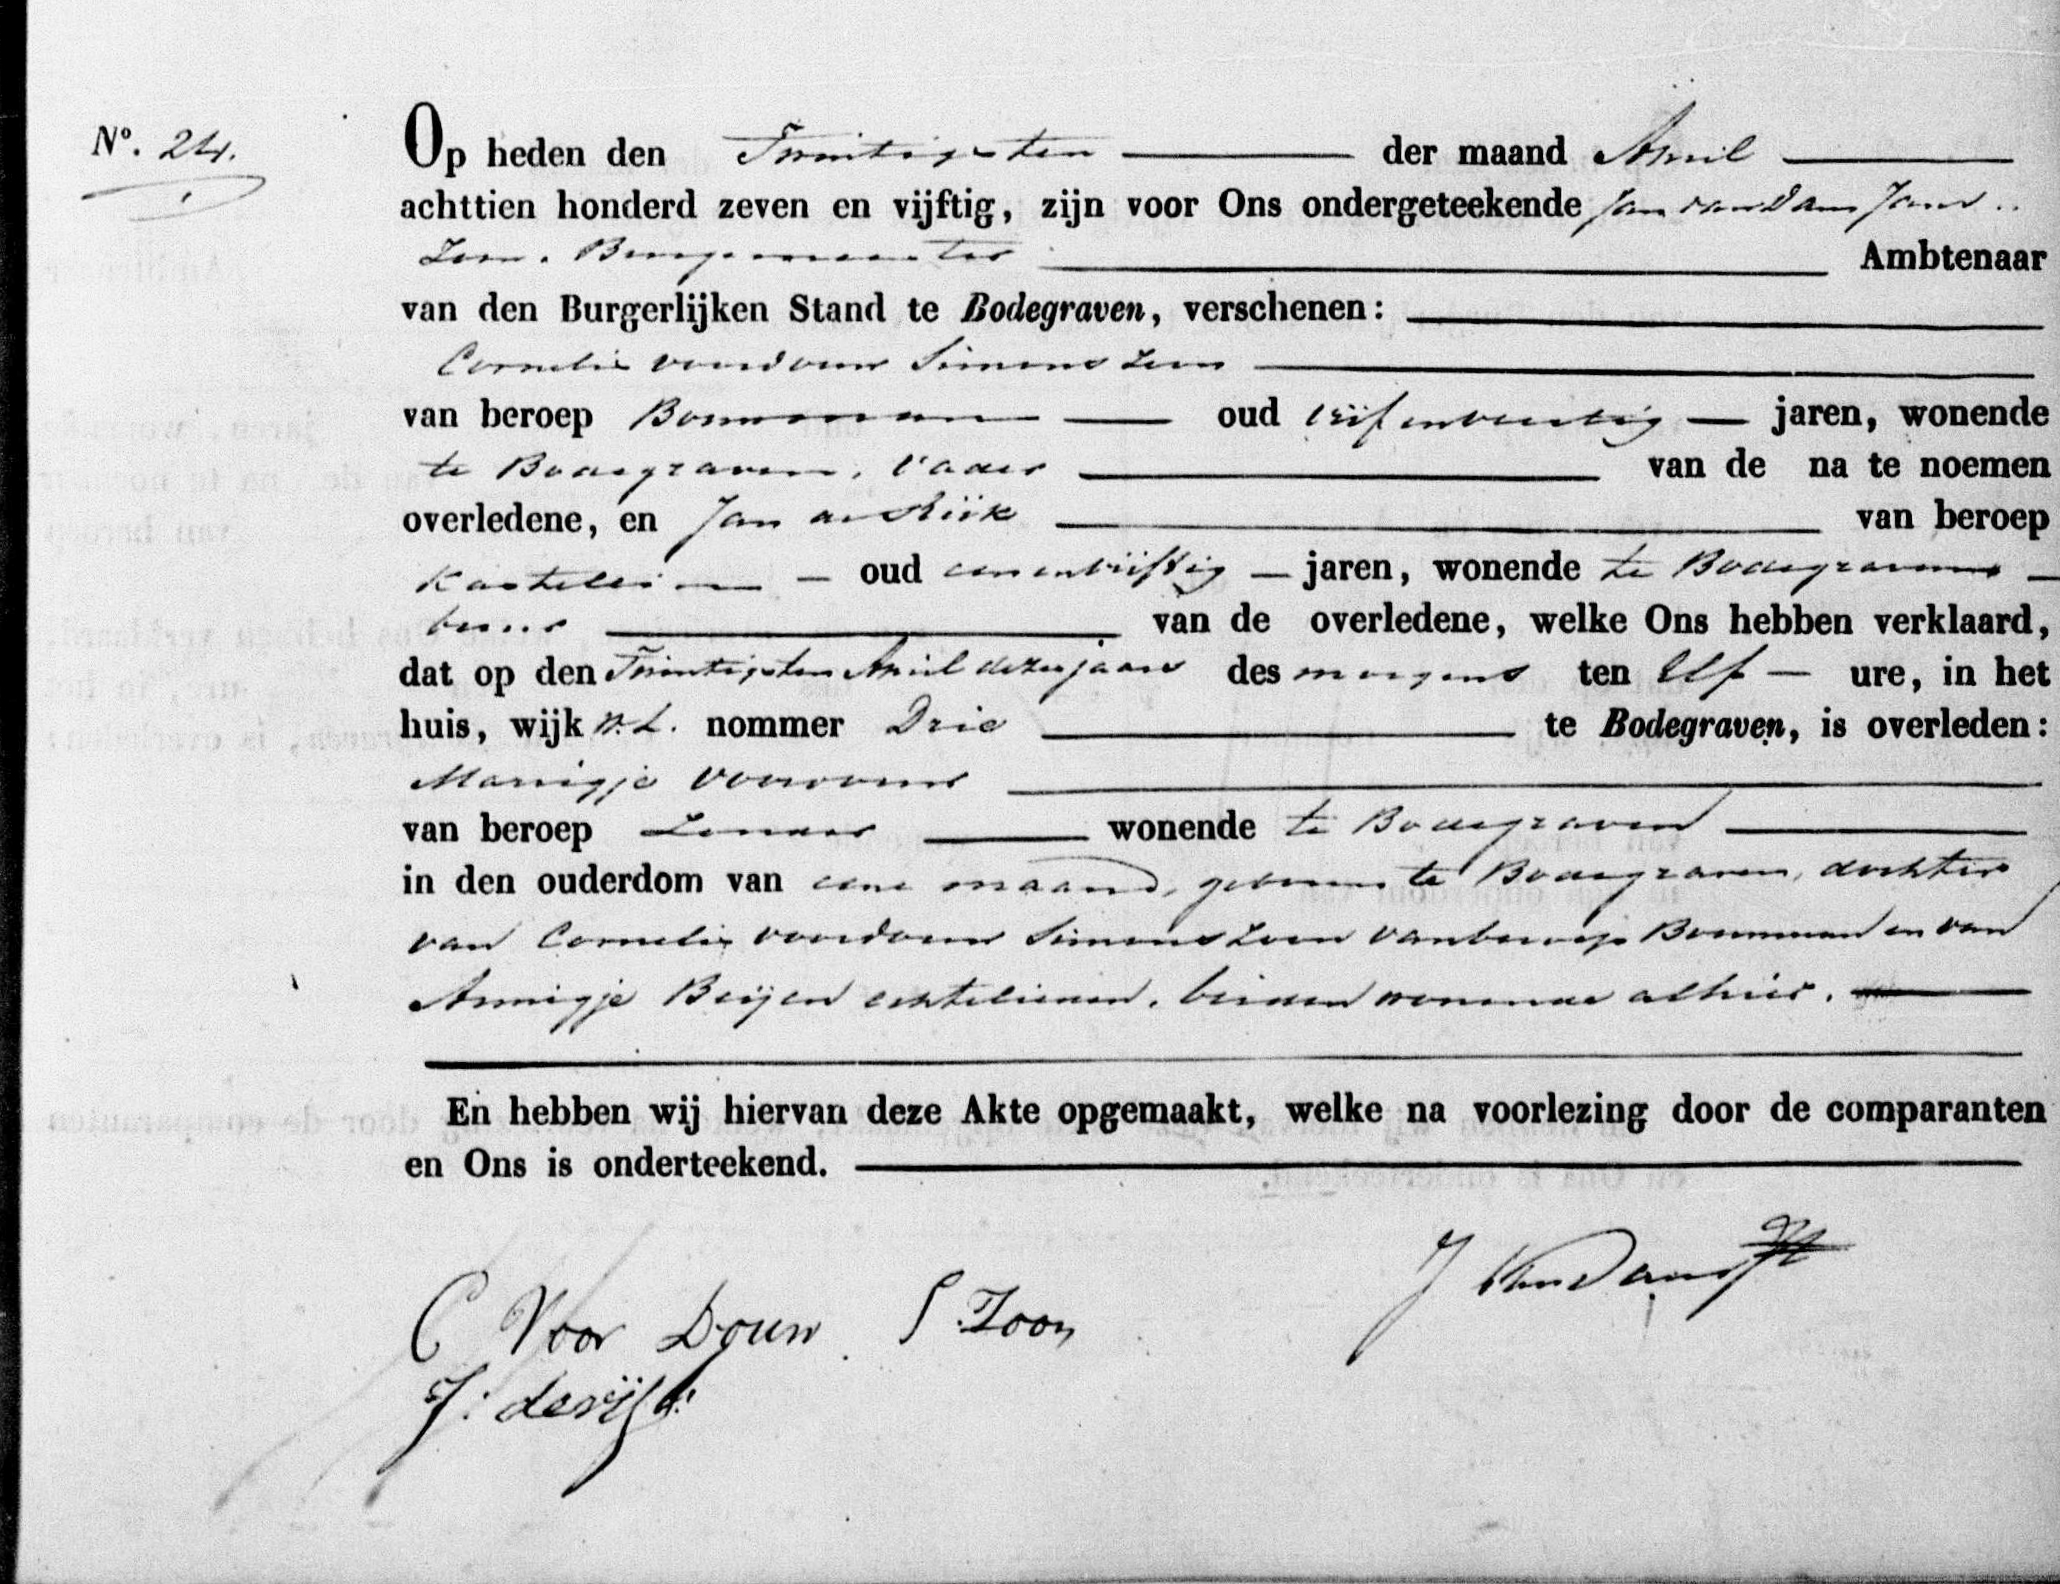 No. 24.
Op heden den Twintigsten der maand April
achttien honderd zeven en vijftig, zijn voor Ons ondergeteekende Jan van Dam Jans
Zoon. Burgemeester Ambtenaar
van den Burgerlijken Stand te Bodegraven, verschenen:
Cornelis voordouw Simons Zoon
van beroep Bouwman oud vijfenveertig jaren, wonende
te Bodegraven, Vader van de na te noemen
overledene, en Jan de Rijk van beroep
Kastelein oud eenenvijftig jaren, wonende te Bodegraven
buur van de overledene, welke Ons hebben verklaard,
dat op den Twintigsten April dezes jaars des morgens ten Elf ure, in het
huis, wijk nommer Drie te Bodegraven, is overleden:
Marrigje Voordouw
van beroep Zonder wonende te Bodegraven
in den ouderdom van eene maand, geboren te Bodegraven, dochter
van Cornelis voordouw Simons Zoon van beroep Bouwman en van
Annigje Beijen echtelieden, beiden wonende alhier.
En hebben wij hiervan deze Akte opgemaakt, welke na voorlezing door de comparanten
en Ons is onderteekend.
J Van Dam JZ
C Voor Douw S. Zoon
J: de rijk